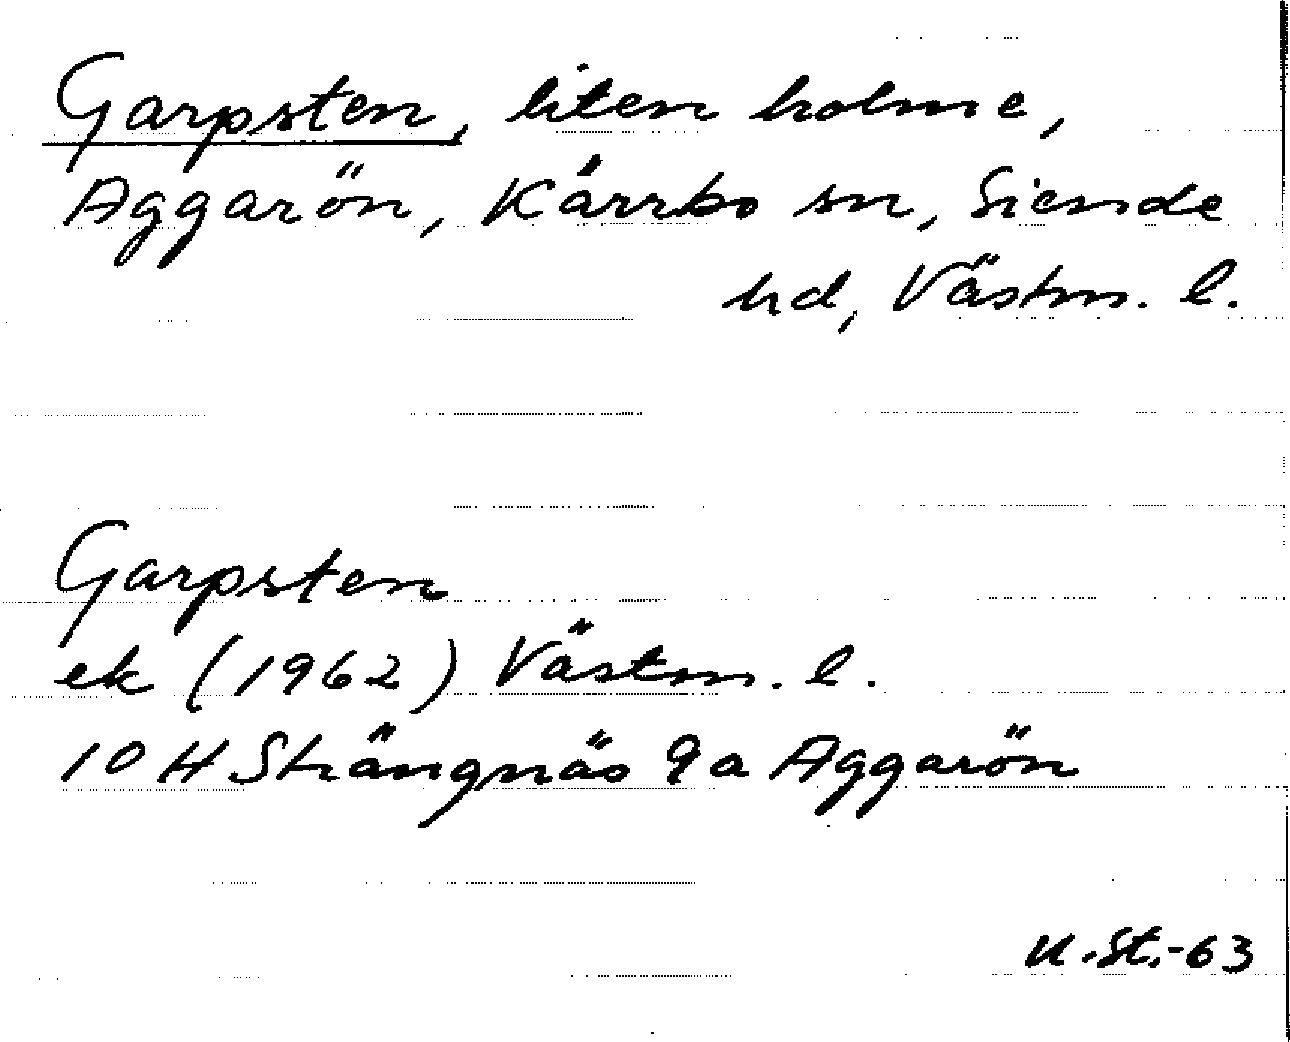 Garpsten, liten holme,
Aggarön, Kärrbo sn, Siende
hd, Västm. l.
Garpsten
ek (1962) Västm. l.
10 H Strängnäs 9a Aggarön
K.St.-63